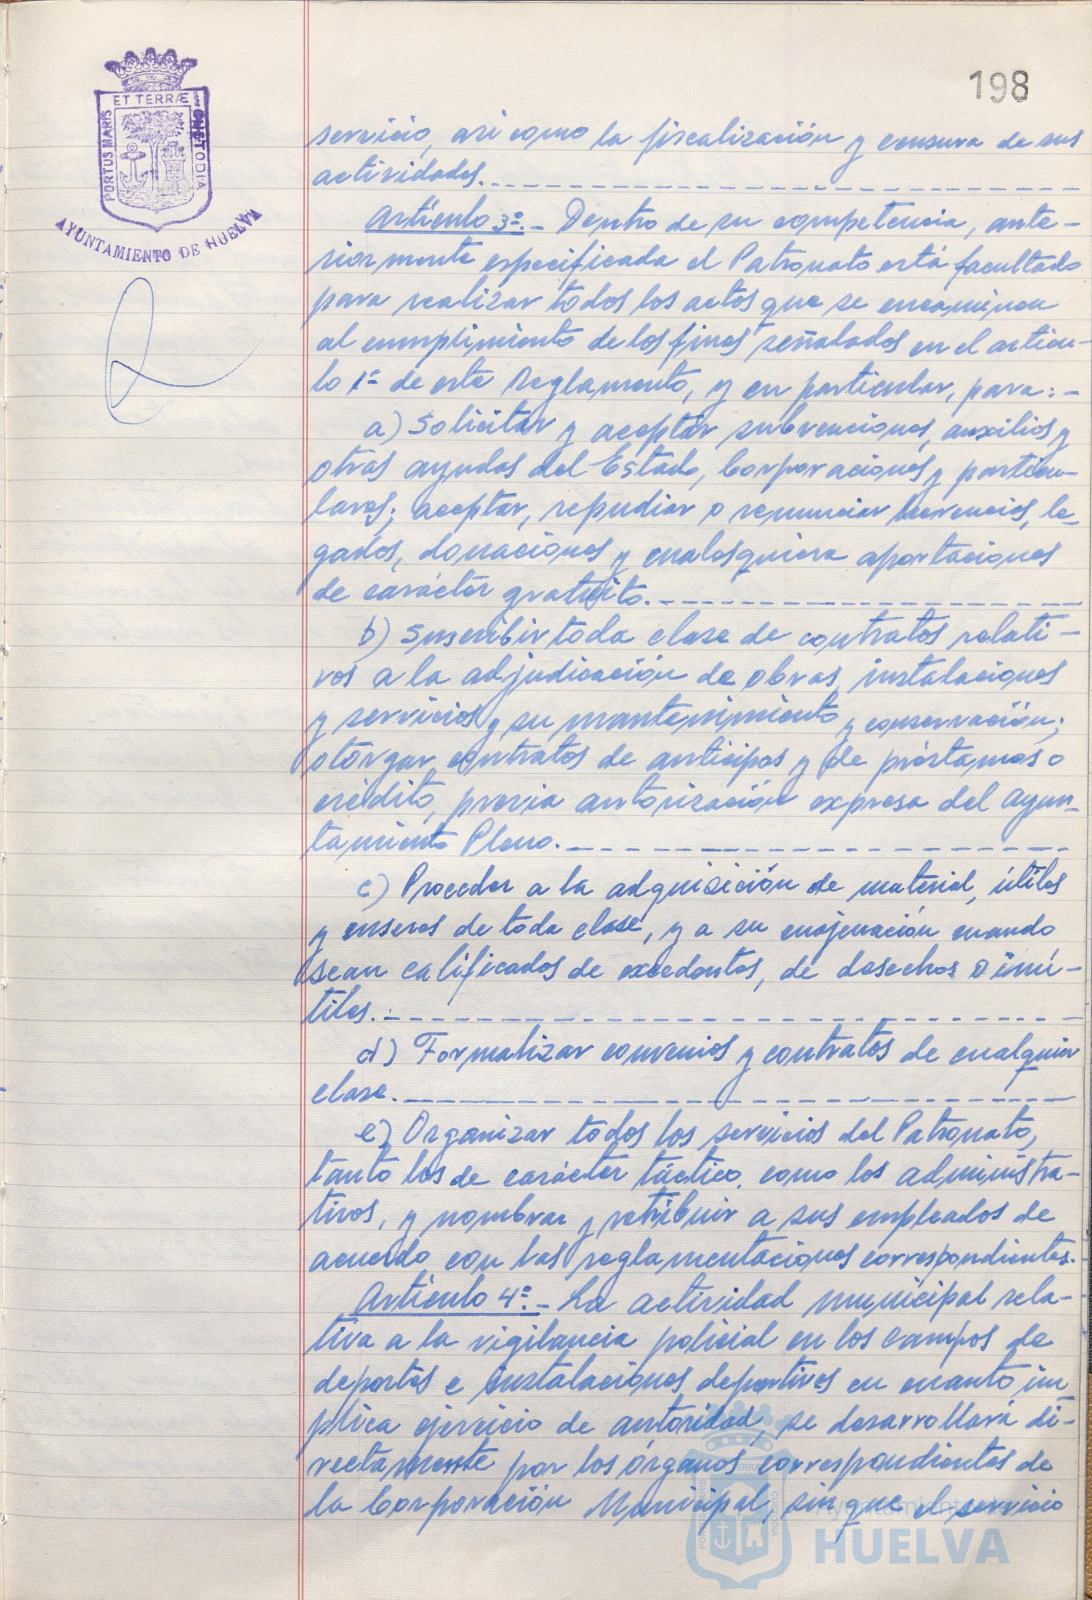 198
ET TERRÆ
PORTUS MARIS
CUSTODIA
AYUNTAMIENTO DE HUELVA
servicio, asi como la fiscalización y censura de sus
actividades.
Artículo 3º.- Dentro de su competencia, ante-
riormente especificada el Patronato está facultado
para realizar todos los actos que se encaminen
al cumplimiento de los fines señalados en el articu-
lo 1º de este Reglamento, y en particular, para:-
a) Solicitar y aceptar subvenciones, auxilios y
otras ayudas del Estado, Corporaciones y particu-
lares; aceptar, repudiar o renunciar herencias, le-
gados, donaciones y cualesquiera aportaciones
de carácter gratuito.
b) Suscribir toda clase de contratos relati-
vos a la adjudicación de obras, instalaciones
y servicios y su mantenimiento y conservación;
otorgar contratos de anticipos y de préstamos o
crédito, previa autorización expresa del Ayun-
tamiento Pleno.
c) Proceder a la adquisición de material, útiles
y enseres de toda clase, y a su enajenación cuando
sean calificados de excedentes, de desechos o inú-
tiles.
d) Formalizar convenios y contratos de cualquier
clase.
e) Organizar todos los servicios del Patronato,
tanto los de carácter táctico, como los administra-
tivos, y nombrar y retribuir a sus empleados de
acuerdo con las reglamentaciones correspondientes.
Artículo 4º.- La actividad municipal rela-
tiva a la vigilancia policial en los campos de
deportes e instalaciones deportivas en cuanto im
plica ejercicio de autoridad, se desarrollará di-
rectamente por los órganos correspondientes de
la Corporación Municipal, sin que el servicio
Ayuntamiento
HUELVA